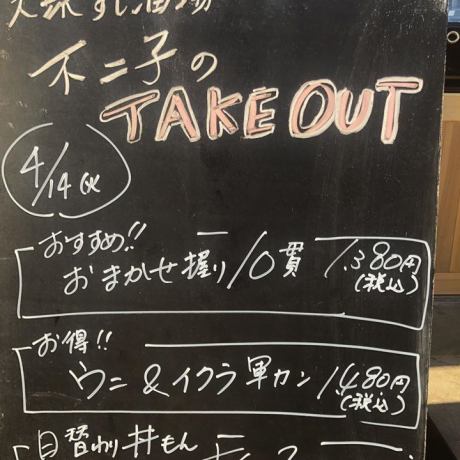 大衆すし酒場
不二子の
TAKE OUT
4/14㈫
おすすめ!!
おまかせ握り10貫 1,380円
(税込)
お得!!
ウニ&イクラ軍カン 1,480円
(税込)
日替わり丼もん